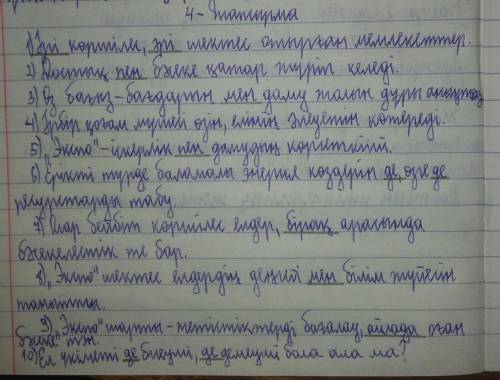 4 - тапсырма
1) Әрі көршілес, әрі шектес отырған мемлекеттер.
2) Достық пен бәеке қатар жүріп келеді.
3) Өз бағыт-бағдарын мен даму жолын дұрыс анықтау
4) Әрбір қоғам мүшесі өзін, елінің әлеуетін көтереді.
5) "Экспо"-іскерлік пен дамудың көрсеткіші.
6) Ерікті түрде баламалы энергия көздерін де, өзге де
ресурстарды табу.
7) Олар бейбіт көршілес елдер, бірақ арасында
бәекелестік те бар.
8) "Экспо" шектес елдердің деңгейі мен білім жүйесін
танытты.
9) "Экспо" шарты-жетістіктерді бағалау, алайда оған
бәеке
10) Ел үкіметі де бірінші, де демеуші бола ала ма?